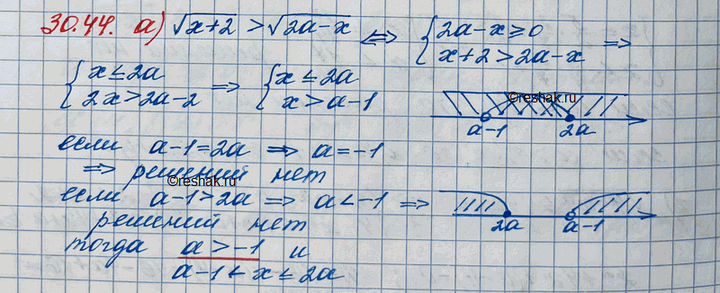 30.44. а) √x+2 > √2a-x ⇔ { 2a-x ≥ 0
x+2 > 2a-x ⇒
{ x ≤ 2a
2x > 2a-2 ⇒ { x ≤ 2a
x > a-1
©reshak.ru
a-1 2a
если a-1=2a ⇒ a=-1
⇒ решений нет
©reshak.ru
если a-1>2a ⇒ a<-1 ⇒
2a a-1
решений нет
тогда a>-1 и
a-1 < x ≤ 2a